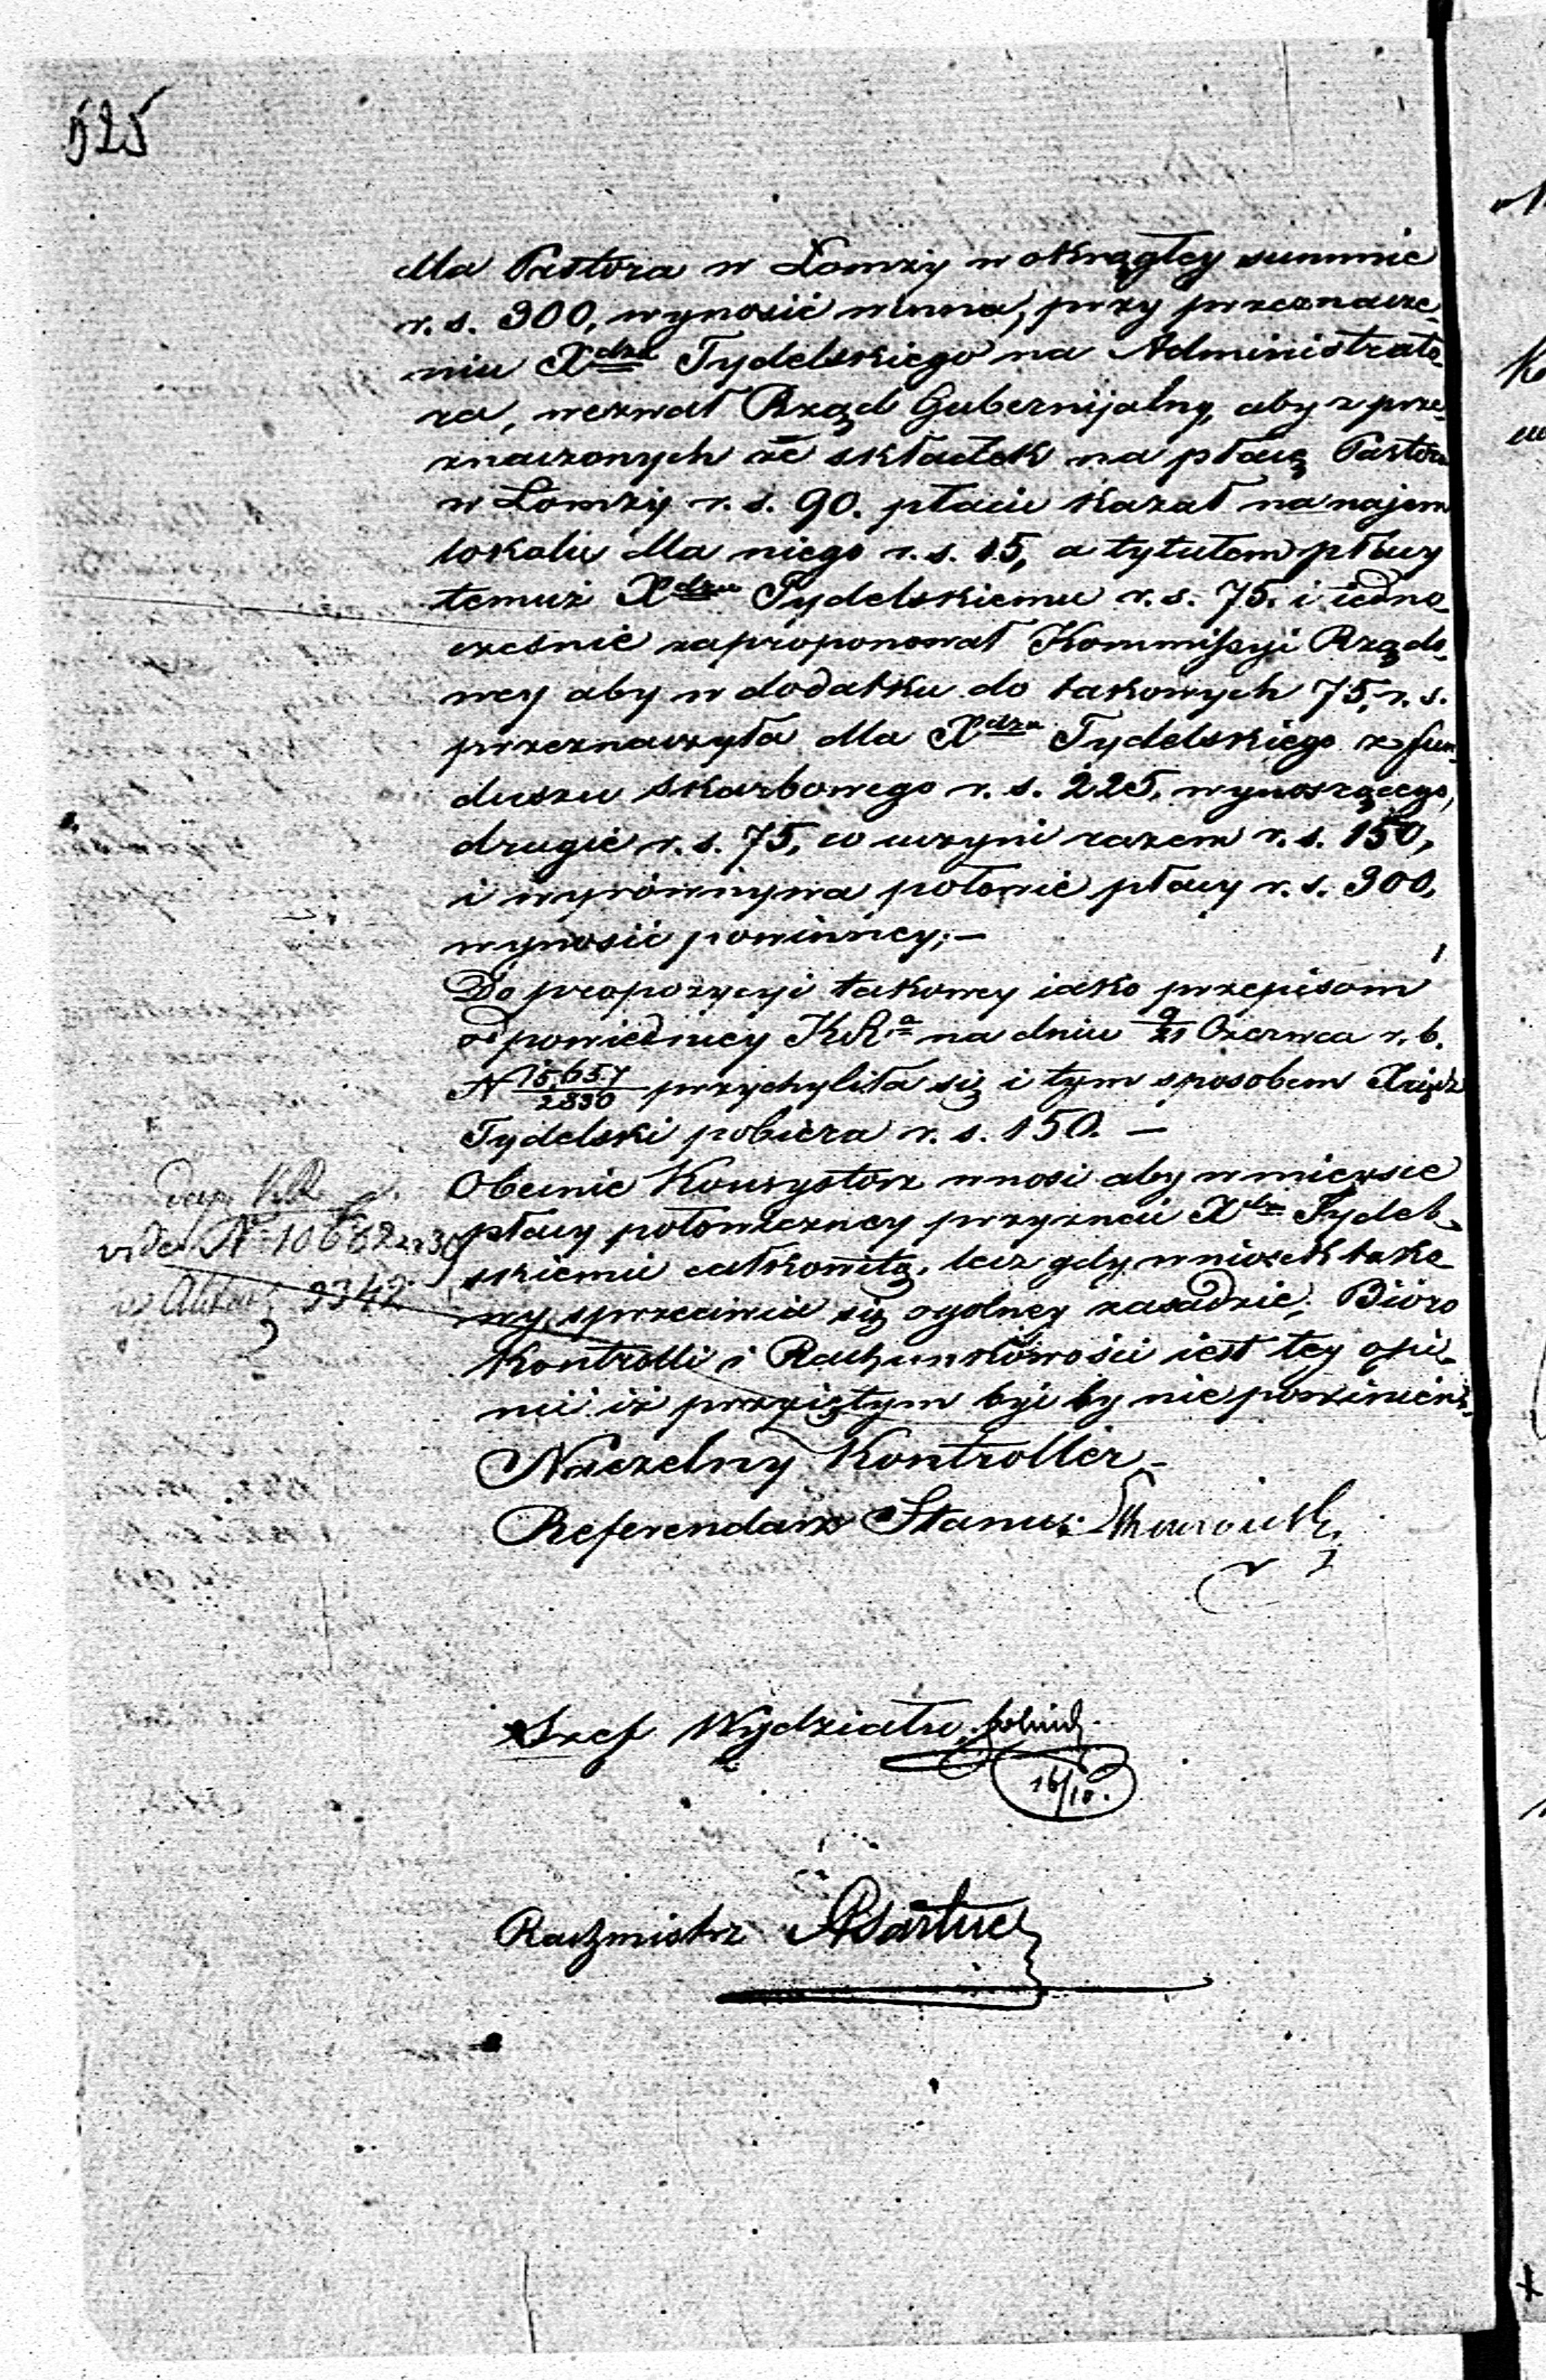 525
dla Pastora w Łomży w okrągłey summie
r. s. 300, wynosić winna, przy przeznacze-
niu Xdza Tydelskiego na Administrato-
ra, wezwał Rząd Gubernijalny, aby z prze-
znaczonych ze składek na płacę Pastora
w Łomży r. s. 90. płacić kazał na najem
lokalu dla niego r. s. 15, a tytułem płacy
temuż Xdzu Tydelskiemu r. s. 75. i iedno-
cześnie zaproponował Kommissyi Rządo-
wey aby w dodatku do takowych 75, r. s.
przeznaczyła dla Xdza Tydelskiego z fun-
duszu skarbowego r. s. 225, wynoszącego,
drugie r. s. 75, co uczyni razem r. s. 150,
i wyrównywa połowie płacy r. s. 300,
wynosić powinney; —
Do propozycyi takowey iako przepisom
odpowiedniey KRa na dniu 9/21 Czerwca r. b.
N 15,657/2830 przychyliła się i tym sposobem Xiądz
Tydelski pobiera r. s. 150. —
Obecnie Konsystorz wnosi aby w miejsce
płacy połowiczney przyznać Xdzu Tydel-
skiemu całkowitą, lecz gdy wniosek tako-
wy sprzeciwia się ogólney zasadzie; Bióro
Kontrolli i Rachunkowości iest tey opi-
nii iż przyiętym być by nie powinien.
vide N 10682
9342
Naczelny Kontroller
Referendarz Stanu
Szef Wydziału
16/10.
Rachmistrz